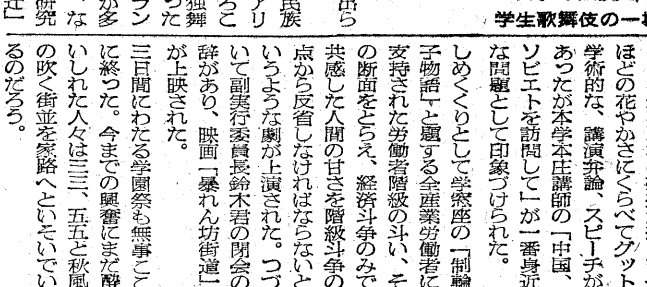 学生歌舞伎の一
ほどの花やかさにくらべてグット
学術的な、講演弁論、スピーチが
あったが本学本庄講師の「中国、
ソビエトを訪問して」が一番身近
な問題として印象づけられた。
しめくくりとして学窓座の「制輪
子物語」と題する全産業労働者に
支持された労働者階級の斗い、そ
の断面をとらえ、経済斗争のみで
共感した人間の甘さを階級斗争の
点から反省しなければならないと
いうような劇が上演された。つづ
いて副実行委員長鈴木君の閉会の
辞があり、映画「暴れん坊街道」
が上映された。
三日間にわたる学園祭も無事ここ
に終った。今までの興奮にまだ酔
いしれた人々は三三、五五と秋風
の吹く街並を家路へといそいでい
るのだろう。
出ら
民族
アリ
ろこ
独舞
った
ラン
が多
、な
研究